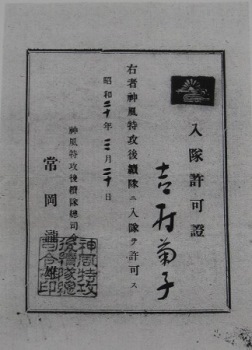 入隊許可證
吉村菊子
右者神風特攻後續隊ニ入隊ヲ許可ス
昭和二十年三月二十日
神風特攻後續隊總司令
常岡瀧雄
神風特攻
後續隊總